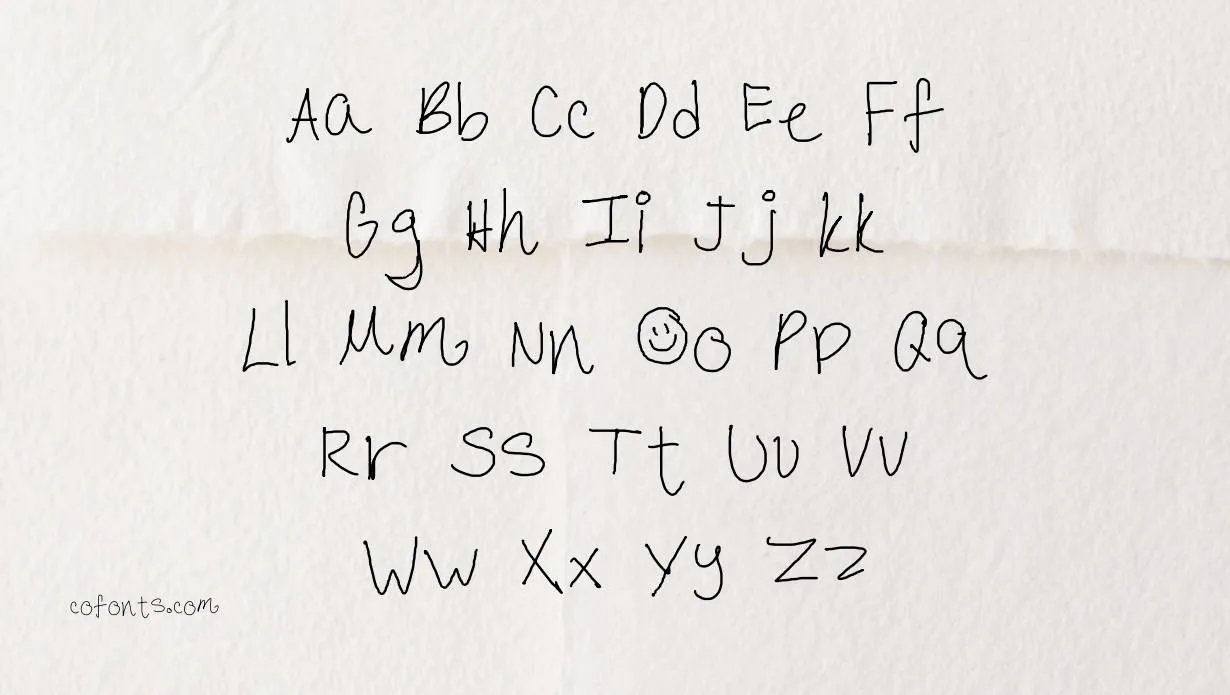 Aa Bb Cc Dd Ee Ff
Gg Hh Ii Jj Kk
Ll Mm Nn Oo Pp Qq
Rr Ss Tt Uu Vv
Ww Xx Yy Zz
cofonts.com